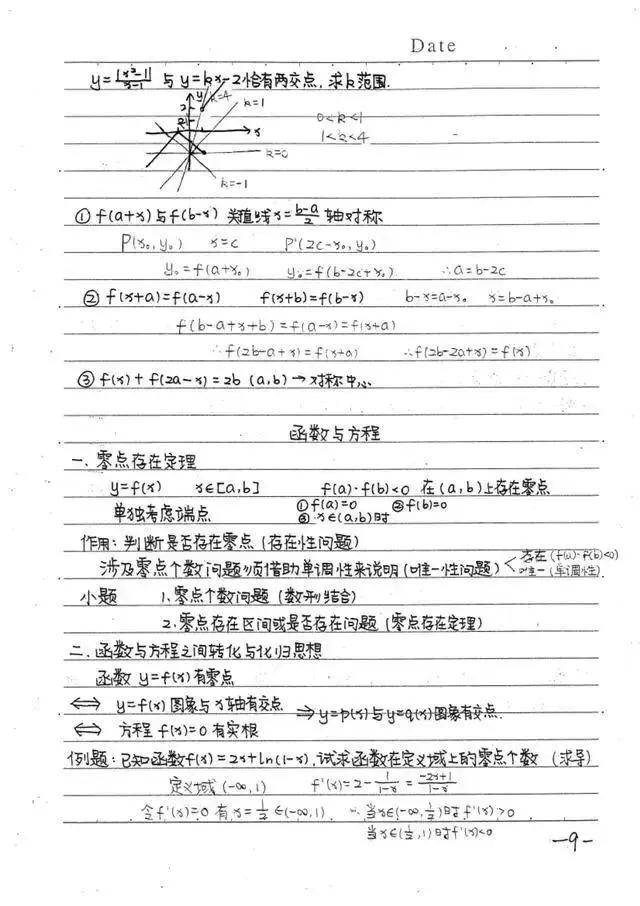 Date
y=|x²-1|/x-1 与 y=kx-2恰有两交点,求k范围.
y k=4 k=1
2
0<k<1
x
1<k<4
k=0
k=-1
① f(a+x)与f(b-x) 关直线x=b-a/2 轴对称
P(x₀,y₀) x=c P'(2c-x₀,y₀)
y₀=f(a+x₀) y₀=f(b-2c+x₀) ∴a=b-2c
② f(x+a)=f(a-x) f(x+b)=f(b-x) b-x=a-x₀ x=b-a+x₀
f(b-a+x+b)=f(a-x)=f(x+a)
∴f(2b-a+x)=f(x+a) ∴f(2b-2a+x)=f(x)
③ f(x)+f(2a-x)=2b (a,b)→对称中心
函数与方程
一.零点存在定理
y=f(x) x∈[a,b] f(a)·f(b)<0 在(a,b)上存在零点
单独考虑端点 ①f(a)=0 ②f(b)=0
③x∈(a,b)时
作用:判断是否存在零点(存在性问题)
涉及零点个数问题须借助单调性来说明(唯一性问题) 存在(f(a)·f(b)<0)
唯一(单调性)
小题 1.零点个数问题(数形结合)
2.零点存在区间或是否存在问题(零点存在定理)
二.函数与方程之间转化与化归思想
函数y=f(x)有零点
⟺ y=f(x)图象与x轴有交点 ⇒y=p(x)与y=q(x)图象有交点.
⟺ 方程f(x)=0有实根
例题:已知函数f(x)=2x+ln(1-x),试求函数在定义域上的零点个数(求导)
定义域(-∞,1) f'(x)=2-1/1-x=-2x+1/1-x
令f'(x)=0 有x=1/2∈(-∞,1) ∴当x∈(-∞,1/2)时f'(x)>0
当x∈(1/2,1)时f'(x)<0
-9-